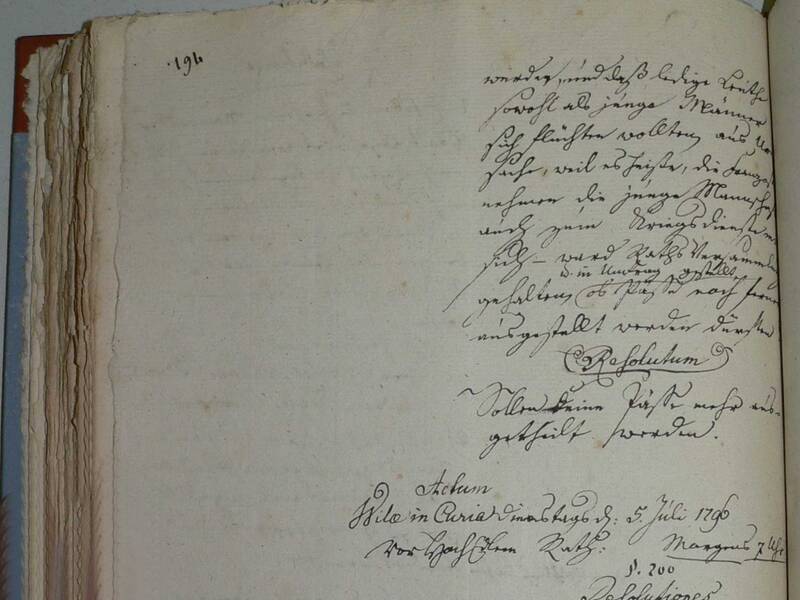 196
werden, und daß ledige Leuthe
sowohl als junge Männer
sich flüchten wollten, aus Ur-
sache, weil es heiße, die Franzos
nehmen die junge Mannschaf
auch zum Kriegsdienste m
sich – ward Raths Versamml
u. in Umfrag gestellt
gehalten, ob Pässe noch ferne
ausgestellt werden dürften
Resolutum
Sollen keine Pässe mehr aus-
getheilt werden.
Actum
Wilæ in Curia dienstags d: 5. Juli 1796
Vor HochEdlem Rath: Morgens 7 Uhr
§. 200
Resolutiones